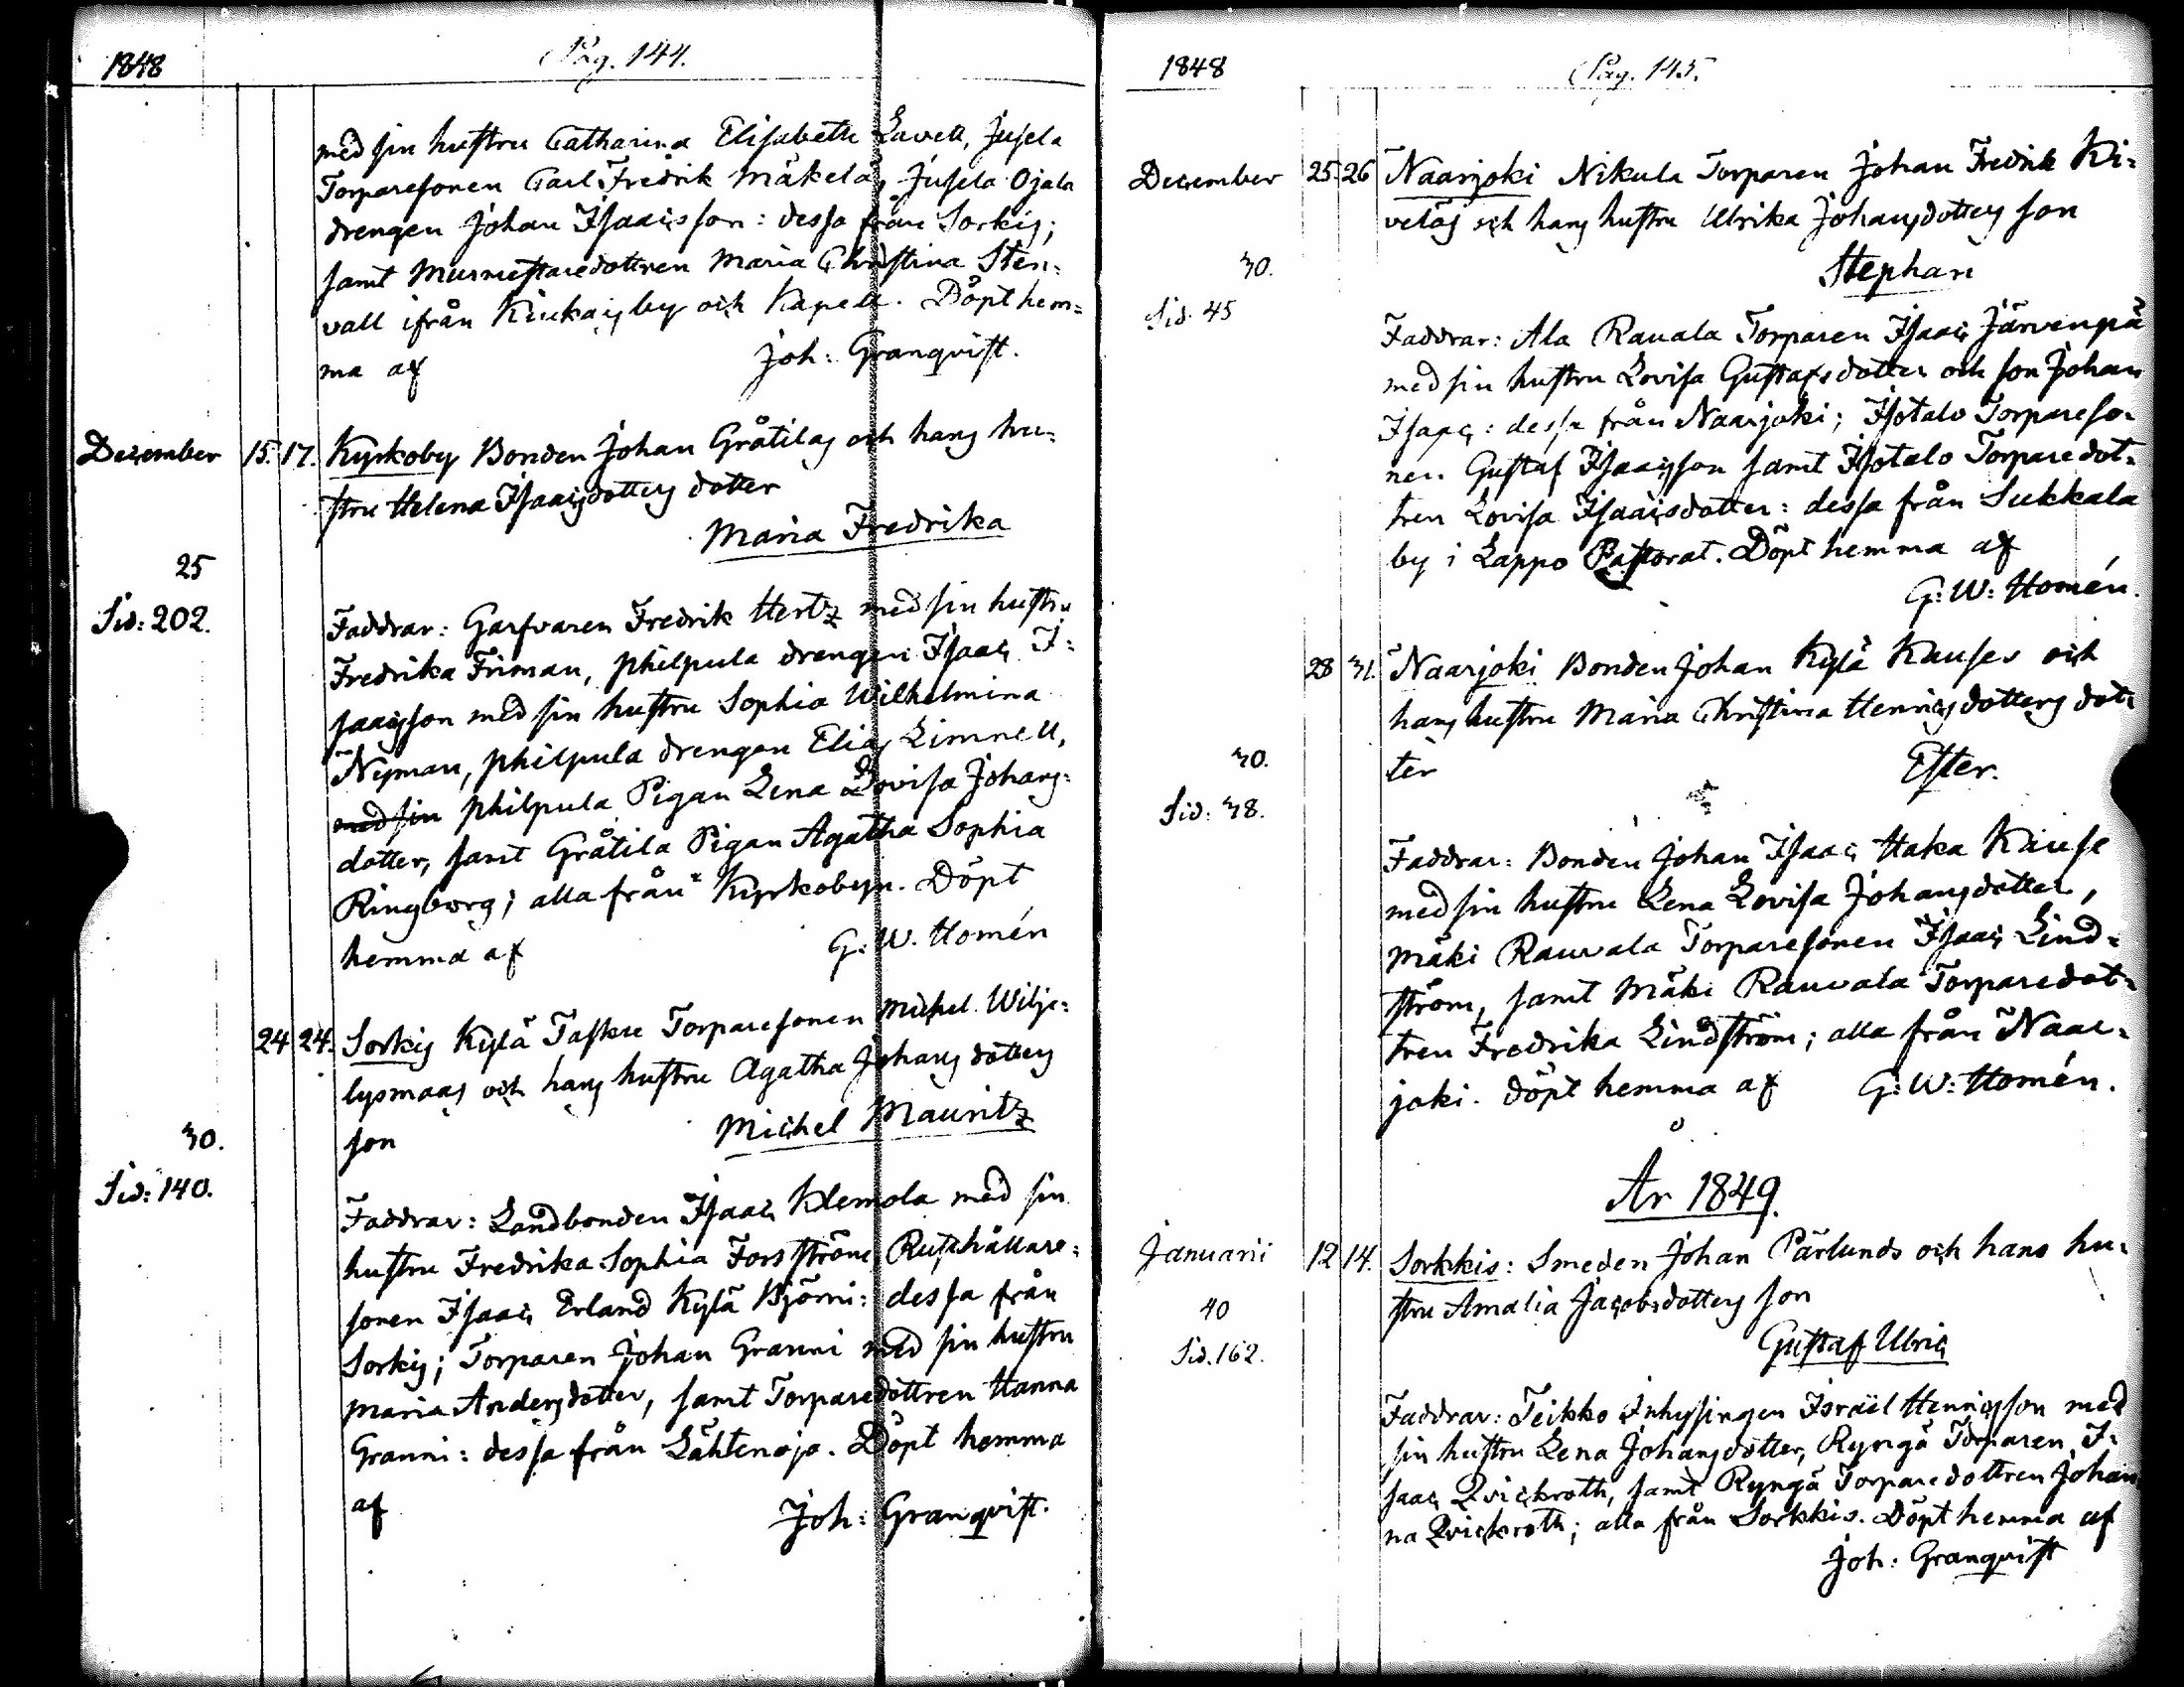 1848
Pag. 144.
med sin hustru Catharina Elisabeth Lavell, Jusela
Torparesonen Carl Fredrik Mäkelä, Jusela Ojala
drengen Johan Isaacsson: dessa från Sorkis;
samt Murmestaredottren Maria Christina Sten-
vall ifrån Kiukais by och Kapell. Döpt hem-
ma af
Joh: Granqvist.
December 15. 17. Kyrkoby Bonden Johan Gråtilas och hans hu-
stru Helena Isaacsdotters dotter
Maria Fredrika
25
Sid: 202.
Faddrar: Garfvaren Fredrik Hertz med sin hustru
Fredrika Friman, Philpula drengen Isaac I-
saacsson med sin hustru Sophia Wilhelmina
Nyman, Philpula drengen Elias Limnell,
med sin Philpula Pigan Lena Lovisa Johans-
dotter, samt Gråtila Pigan Agatha Sophia
Ringborg; alla från Kyrkobyn. Döpt
hemma af
G: W. Homén
24 24. Sorkis Kylä Tasku Torparesonen Michel Wilje-
lysmaas och hans hustru Agatha Johans dotters
son
Michel Mauritz
30.
Sid: 140.
Faddrar: Landbonden Isaac Klemola med sin
hustru Fredrika Sophia Forsström, Rusthållare-
sonen Isaac Erland Kylä Björni: dessa från
Sorkis; Torparen Johan Granni med sin hustru
Maria Andersdotter, samt Torparedottren Hanna
Granni: dessa från Lähtenoja. Döpt hemma
af
Joh: Granqvist.
1848
Pag. 145.
December 25. 26 Naarjoki Nikula Torparen Johan Fredrik Ki-
veläs och hans hustru Ulrika Johansdotters son
Stephan
30.
Sid. 45
Faddrar: Ala Rauala Torparen Isaac Järvenpä
med sin hustru Lovisa Gustafsdotter och son Johan
Isaac: dessa från Naarjoki; Isotalo Torpareso-
nen Gustaf Isaacsson samt Isotalo Torparedot-
tren Lovisa Isaacsdotter: dessa från Sukkala
by i Lappo Pastorat. Döpt hemma af
G: W: Homén.
28 31. Naarjoki Bonden Johan Kylä Kauses och
hans hustru Maria Christina Henricsdotters dot-
ter
Ester.
30.
Sid: 38.
Faddrar: Bonden Johan Isaac Haka Kause
med sin hustru Lena Lovisa Johansdotter,
Mäki Rauvala Torparesonen Isaac Lind-
ström, samt Mäki Rauvala Torparedot-
tren Fredrika Lindström; alla från Naar-
joki. Döpt hemma af
G: W: Homén.
År 1849.
Januarii 12 14. Sorkkis: Smeden Johan Pärlunds och hans hu-
stru Amalia Jacobsdotters son
Gustaf Ulric
40
Sid. 162.
Faddrar: Teikko Inhysingen Israël Henricsson med
sin hustru Lena Johansdotter, Ryngä Torparen I-
saac Qvickroth, samt Ryngä Torparedottren Johan
na Qvickroth; alla från Sorkkis. Döpt hemma af
Joh: Granqvist